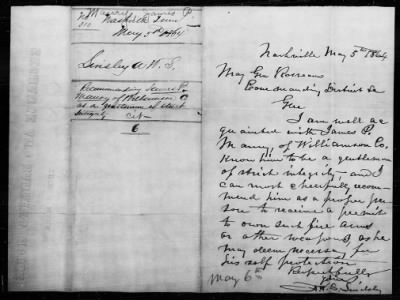 Maury James P.
Nashville Tenn
May 5th 1864
Linsley A V S
Recommending James P.
Maury of Williamson Co
as a gentleman of strict
integrity
6
Nashville May 5th 1864
May Gen Rousseau
Commanding District &c
Gen
I am well ac
quainted with James P.
Maury, of Williamson Co.
Know him to be a gentleman
of strict integrity, and I
can most cheerfully recom
mend him as a proper per
son to receive a permit
to own such fire arms
or other weapons, as he
may deem necessary for
his self protection
Respectfully
May 6th
Lindsley